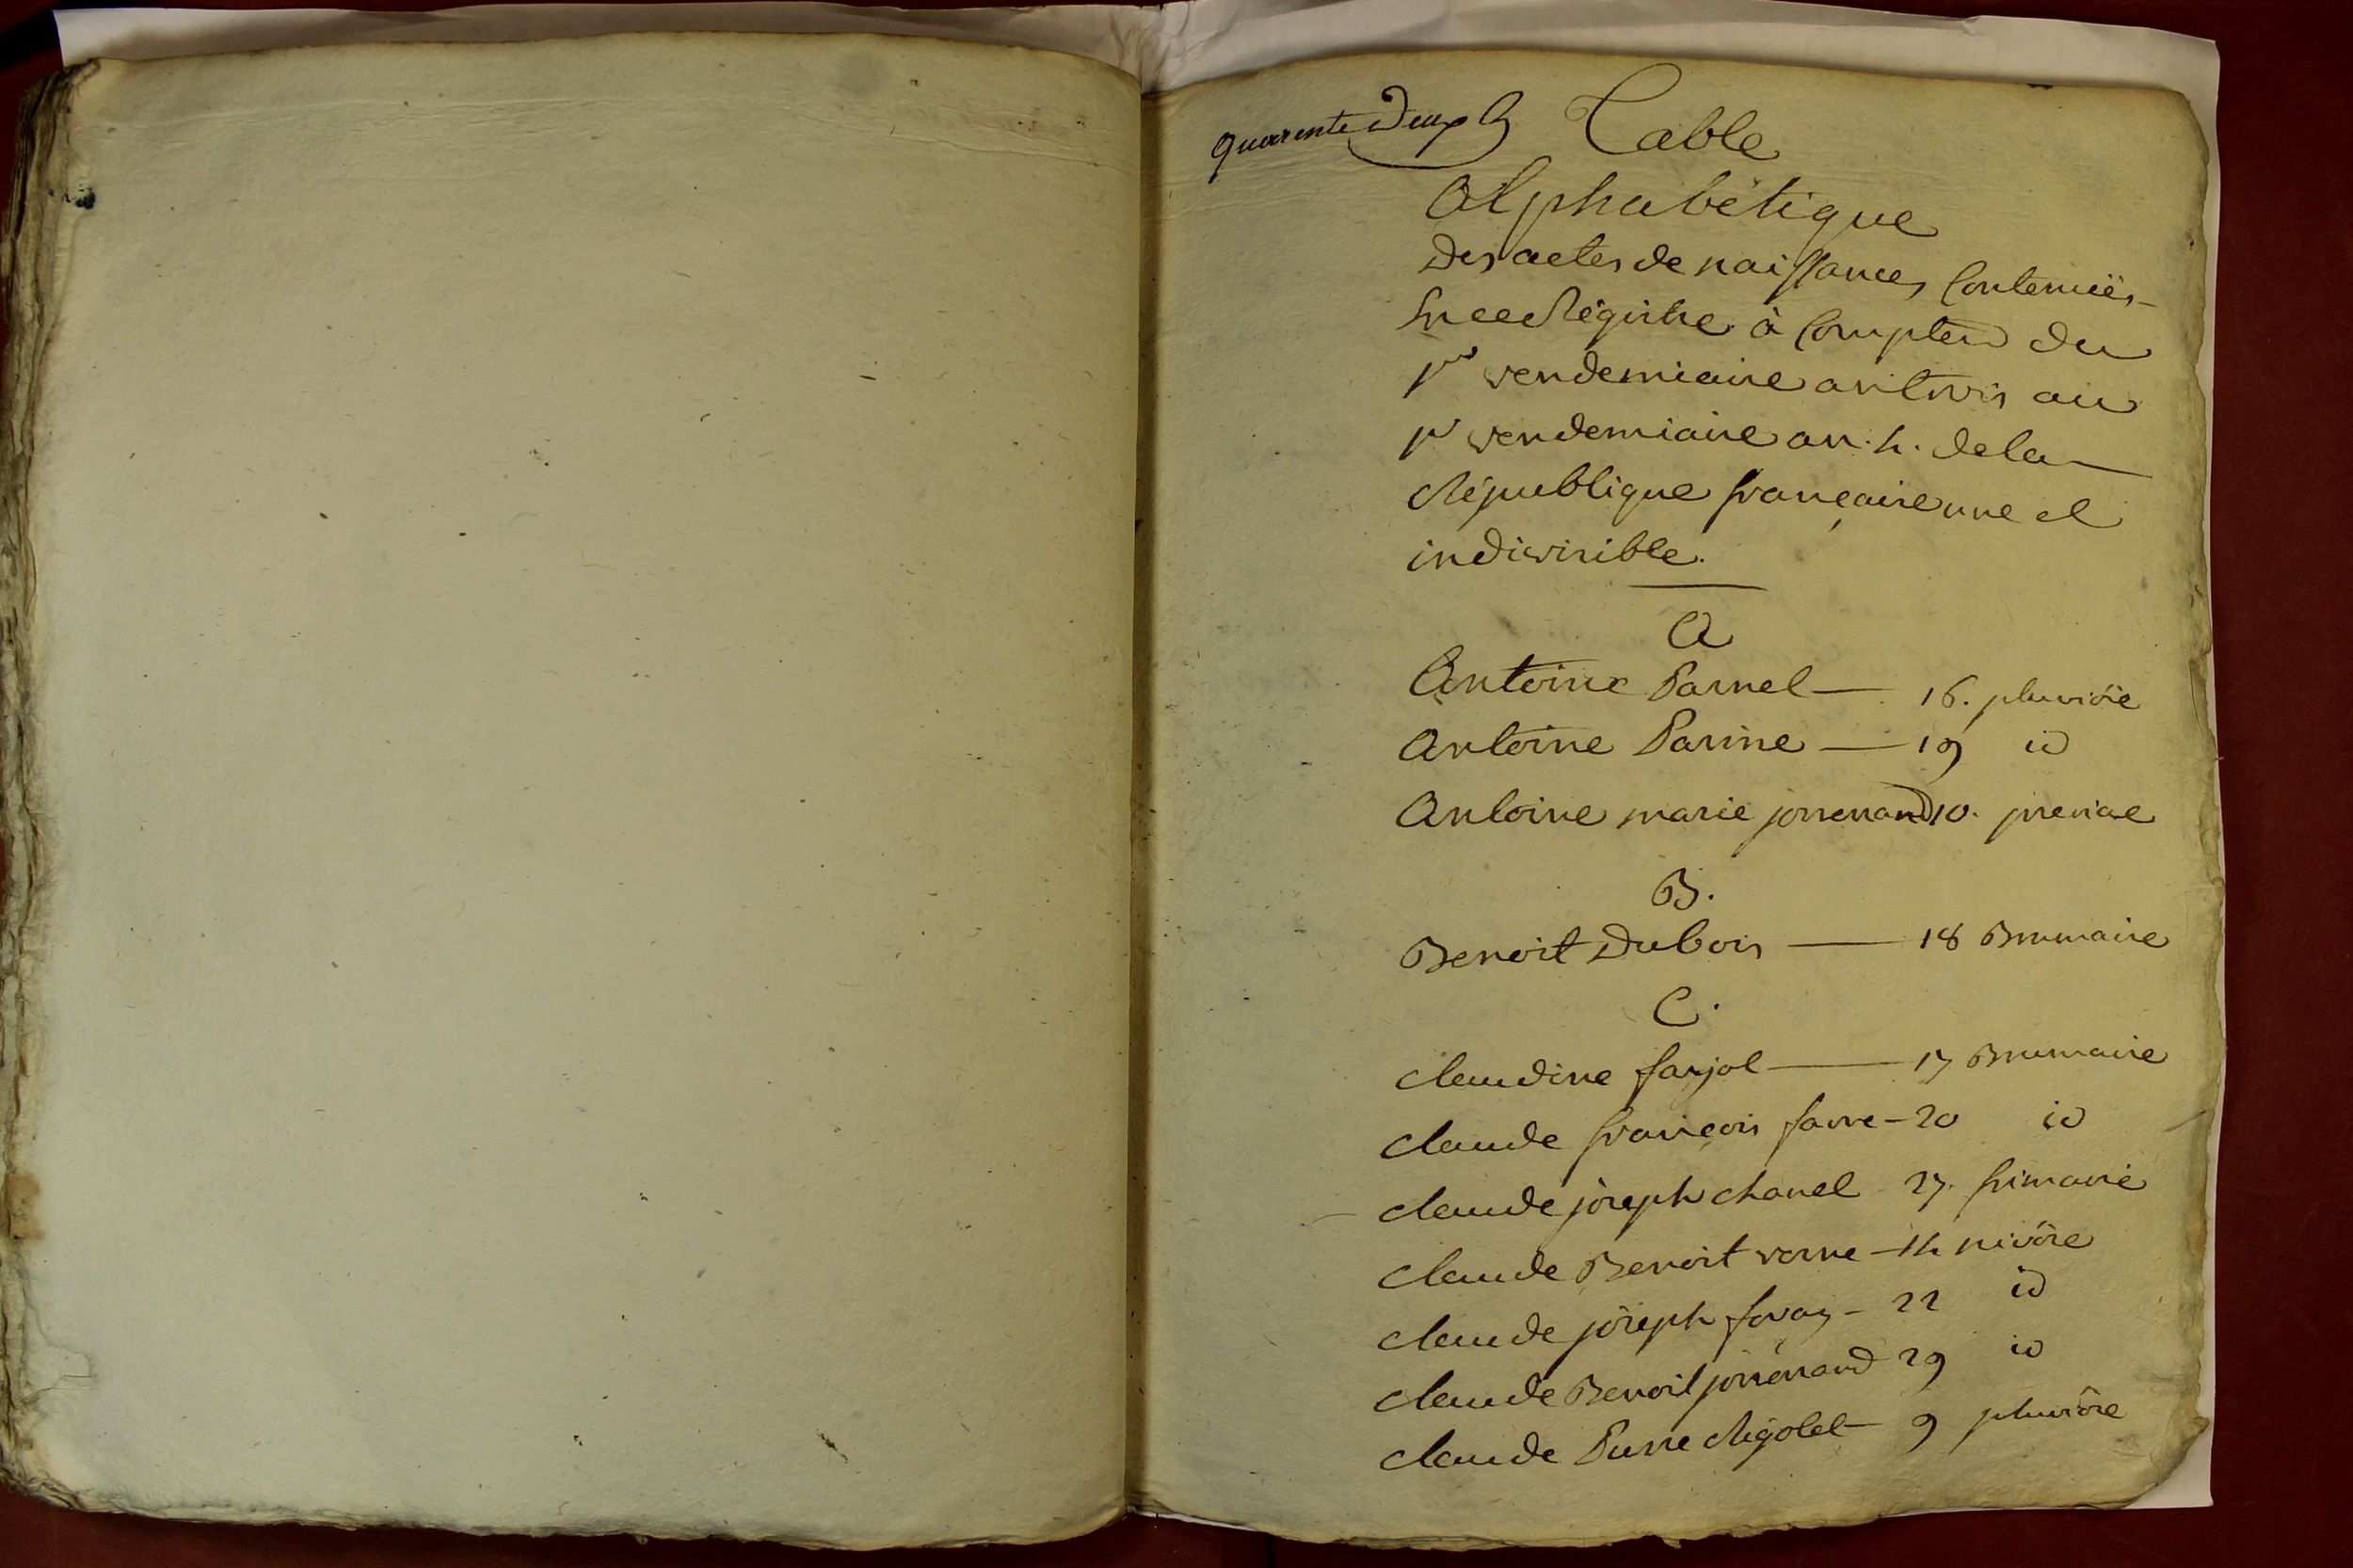 quarente deux
Table
Alphabétique
des actes de naissances Contenuës
En ce Régistre à Compter du
1er vendemiaire an trois au
1er vendemiaire an. 4. de la
République française une et
indivisible.
A
Antoine Parnel — 16. pluviôse
Antoine Parine — 19 id
Antoine marie jonnenand 10. prerial
B.
Benoit Dubois — 18 Brumaire
C.
claudine farjol — 17 Brumaire
claude françois favre — 20 id
claude joseph chanel 27. frimaire
claude Benoit verne — 14 nivôse
claude joseph — 22 id
claude Benoit jonnenand 29 id
claude Pierre Rigolet — 9 pluviôse